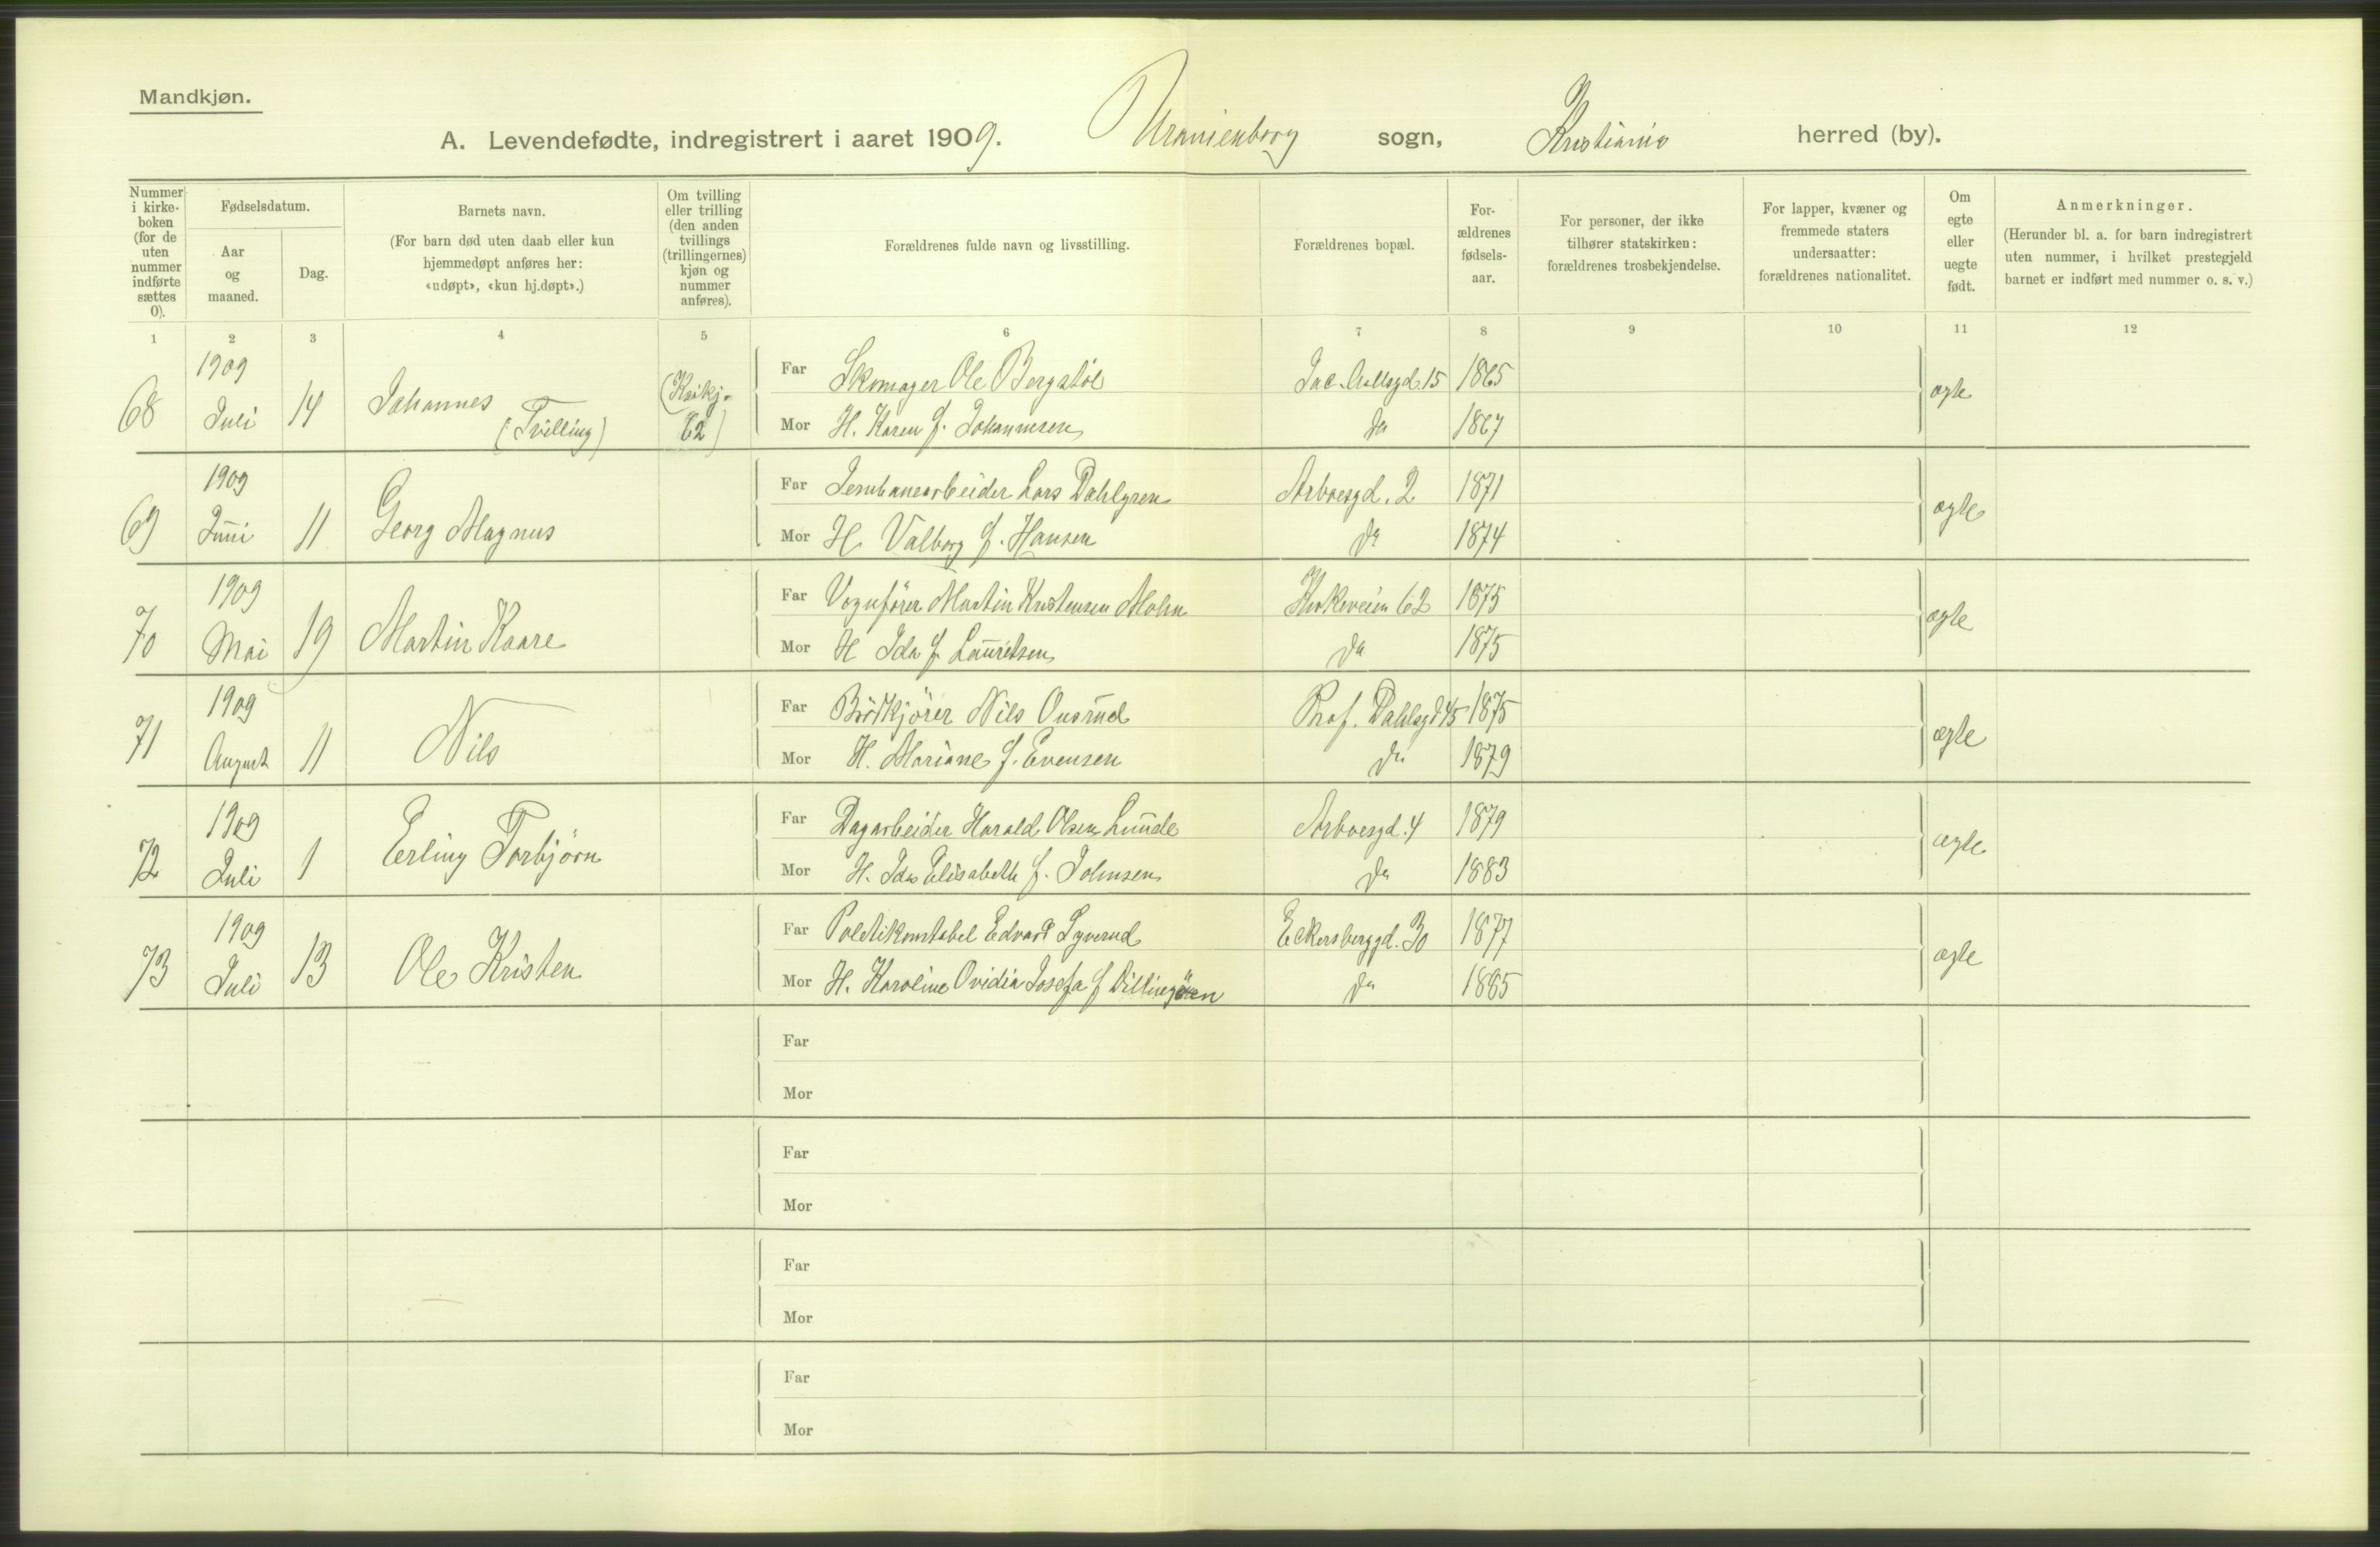 Mandkjøn.
A. Levendefødte, indregistrert i aaret 1909. Uranienborg sogn, Kristiania herred (by).
Nummer i kirke-boken (for de uten nummer indførte sættes 0).
Fødselsdatum.
Aar og maaned.
Dag.
Barnets navn.
(For barn død uten daab eller kun hjemmedøpt anføres her: «udøpt», «kun hj.døpt».)
Om tvilling eller trilling (den anden tvillings (trillingernes) kjøn og nummer anføres).
Forældrenes fulde navn og livsstilling.
Forældrenes bopæl.
For-ældrenes fødsels-aar.
For personer, der ikke tilhører statskirken: forældrenes trosbekjendelse.
For lapper, kvæner og fremmede staters undersaatter: forældrenes nationalitet.
Om egte eller uegte født.
Anmerkninger.
(Herunder bl. a. for barn indregistrert uten nummer, i hvilket prestegjeld barnet er indført med nummer o. s. v.)
1 2 3 4 5 6 7 8 9 10 11 12
68 1909 Juli 14 Johannes (Tvilling) (Kvikj. 62)
Far Skomager Ole Bergstøl Jac. Aallsgd. 15 1865 ægte
Mor H. Karen f. Johannesen do 1867
69 1909 Juni 11 Georg Magnus
Far Jernbanearbeider Lars Dahlgren Arboesgd. 2 1871 ægte
Mor H. Valborg f. Hansen do 1874
70 1909 Mai 19 Martin Kaare
Far Vognfører Martin Kristensen Mohn Kirkeveien 62 1875 ægte
Mor H Ida f. Lauritsen do 1875
71 1909 August 11 Nils
Far Brødkjører Nils Ousrud Prof. Dahlsgd 45 1875 ægte
Mor H. Mariane f. Evensen do 1879
72 1909 Juli 1 Erling Torbjørn
Far Dagarbeider Harald Olsen Lunde Arboesgd. 4 1879 ægte
Mor H. Ida Elisabeth f. Johnsen do 1883
73 1909 Juli 13 Ole Kristen
Far Politikonstabel Edvard Lyverud Eckersberggd. 30 1877 ægte
Mor H. Karoline Ovidia Josefa f do 1865
Far
Mor
Far
Mor
Far
Mor
Far
Mor